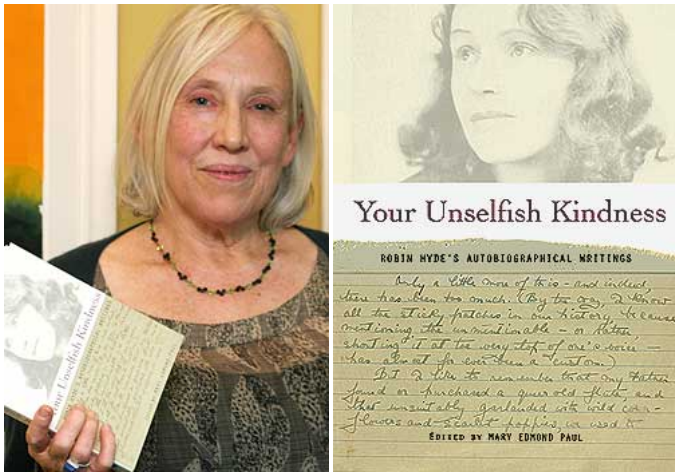 Your Unselfish Kindness
Your Unselfish Kindness
ROBIN HYDE'S AUTOBIOGRAPHICAL WRITINGS
Only a little more of this - and indeed,
there has been too much. (By the way, I know
all the sticky patches in our history because
mentioning the unmentionable - or Rather
shouting it at the very top of one's voice -
has almost for ever been a custom)
D.I. I like to remember that my Father
found or purchased a queer old flute, and
that unsuitably garlanded with wild corn-
flowers and scarlet poppies, we used to
EDITED BY MARY EDMOND PAUL